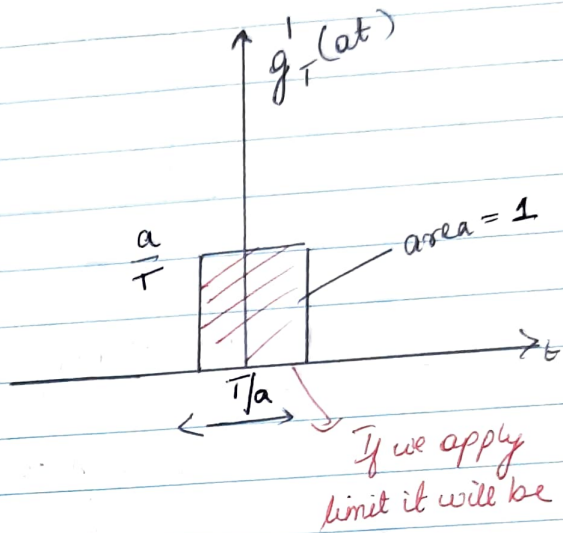 g'_T(at)
a/T
area = 1
t
T/a
If we apply
limit it will be